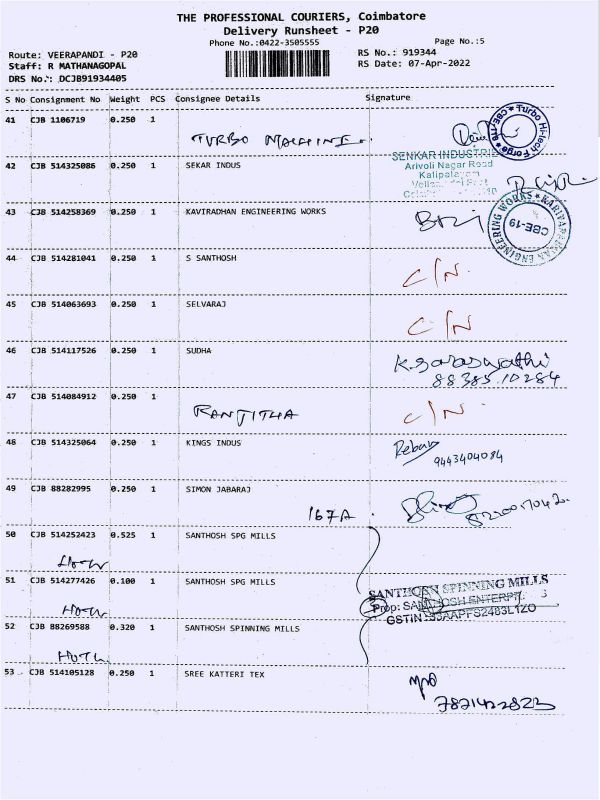 THE PROFESSIONAL COURIERS, Coimbatore
Delivery Runsheet - P20
Phone No.:0422-3505555
Page No.:5
Route: VEERAPANDI - P20
RS No.: 919344
Staff: R MATHANAGOPAL
RS Date: 07-Apr-2022
DRS No.: DCJB91934405
S No Consignment No Weight PCS Consignee Details Signature
41 CJB 1106719 0.250 1
TURBO MACHINE.
Turbo Hi-tech Forge CBE-19
42 CJB 514325086 0.250 1 SEKAR INDUS
SENKAR INDUSTRIE
Arivoli Nagar Road
Kalipalayam
43 CJB 514258369 0.250 1 KAVIRADHAN ENGINEERING WORKS
ENGINEERING WORKS CBE-19
44 CJB 514281041 0.250 1 S SANTHOSH
C/N.
45 CJB 514063693 0.250 1 SELVARAJ
C/N
46 CJB 514117526 0.250 1 SUDHA
K.Saraswathi
88385 10284
47 CJB 514084912 0.250 1
RANJITHA
C/N.
48 CJB 514325064 0.250 1 KINGS INDUS
9443404084
49 CJB 88282995 0.250 1 SIMON JABARAJ
167A.
50 CJB 514252423 0.525 1 SANTHOSH SPG MILLS
51 CJB 514277426 0.100 1 SANTHOSH SPG MILLS
SANTHOSH SPINNING MILLS
Prop: SANTHOSH ENTERPRI S
52 CJB 88269588 0.320 1 SANTHOSH SPINNING MILLS
53 CJB 514105128 0.250 1 SREE KATTERI TEX